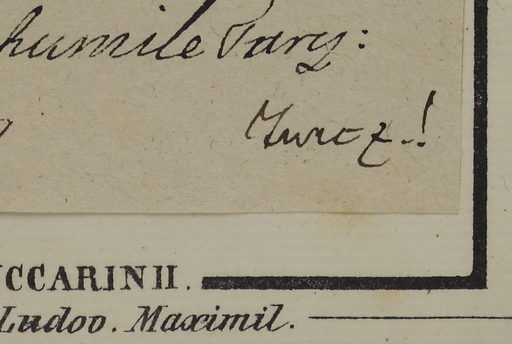 humile Pavy:
Zuccz.!
CCARINII.
Ludov. Maximil.